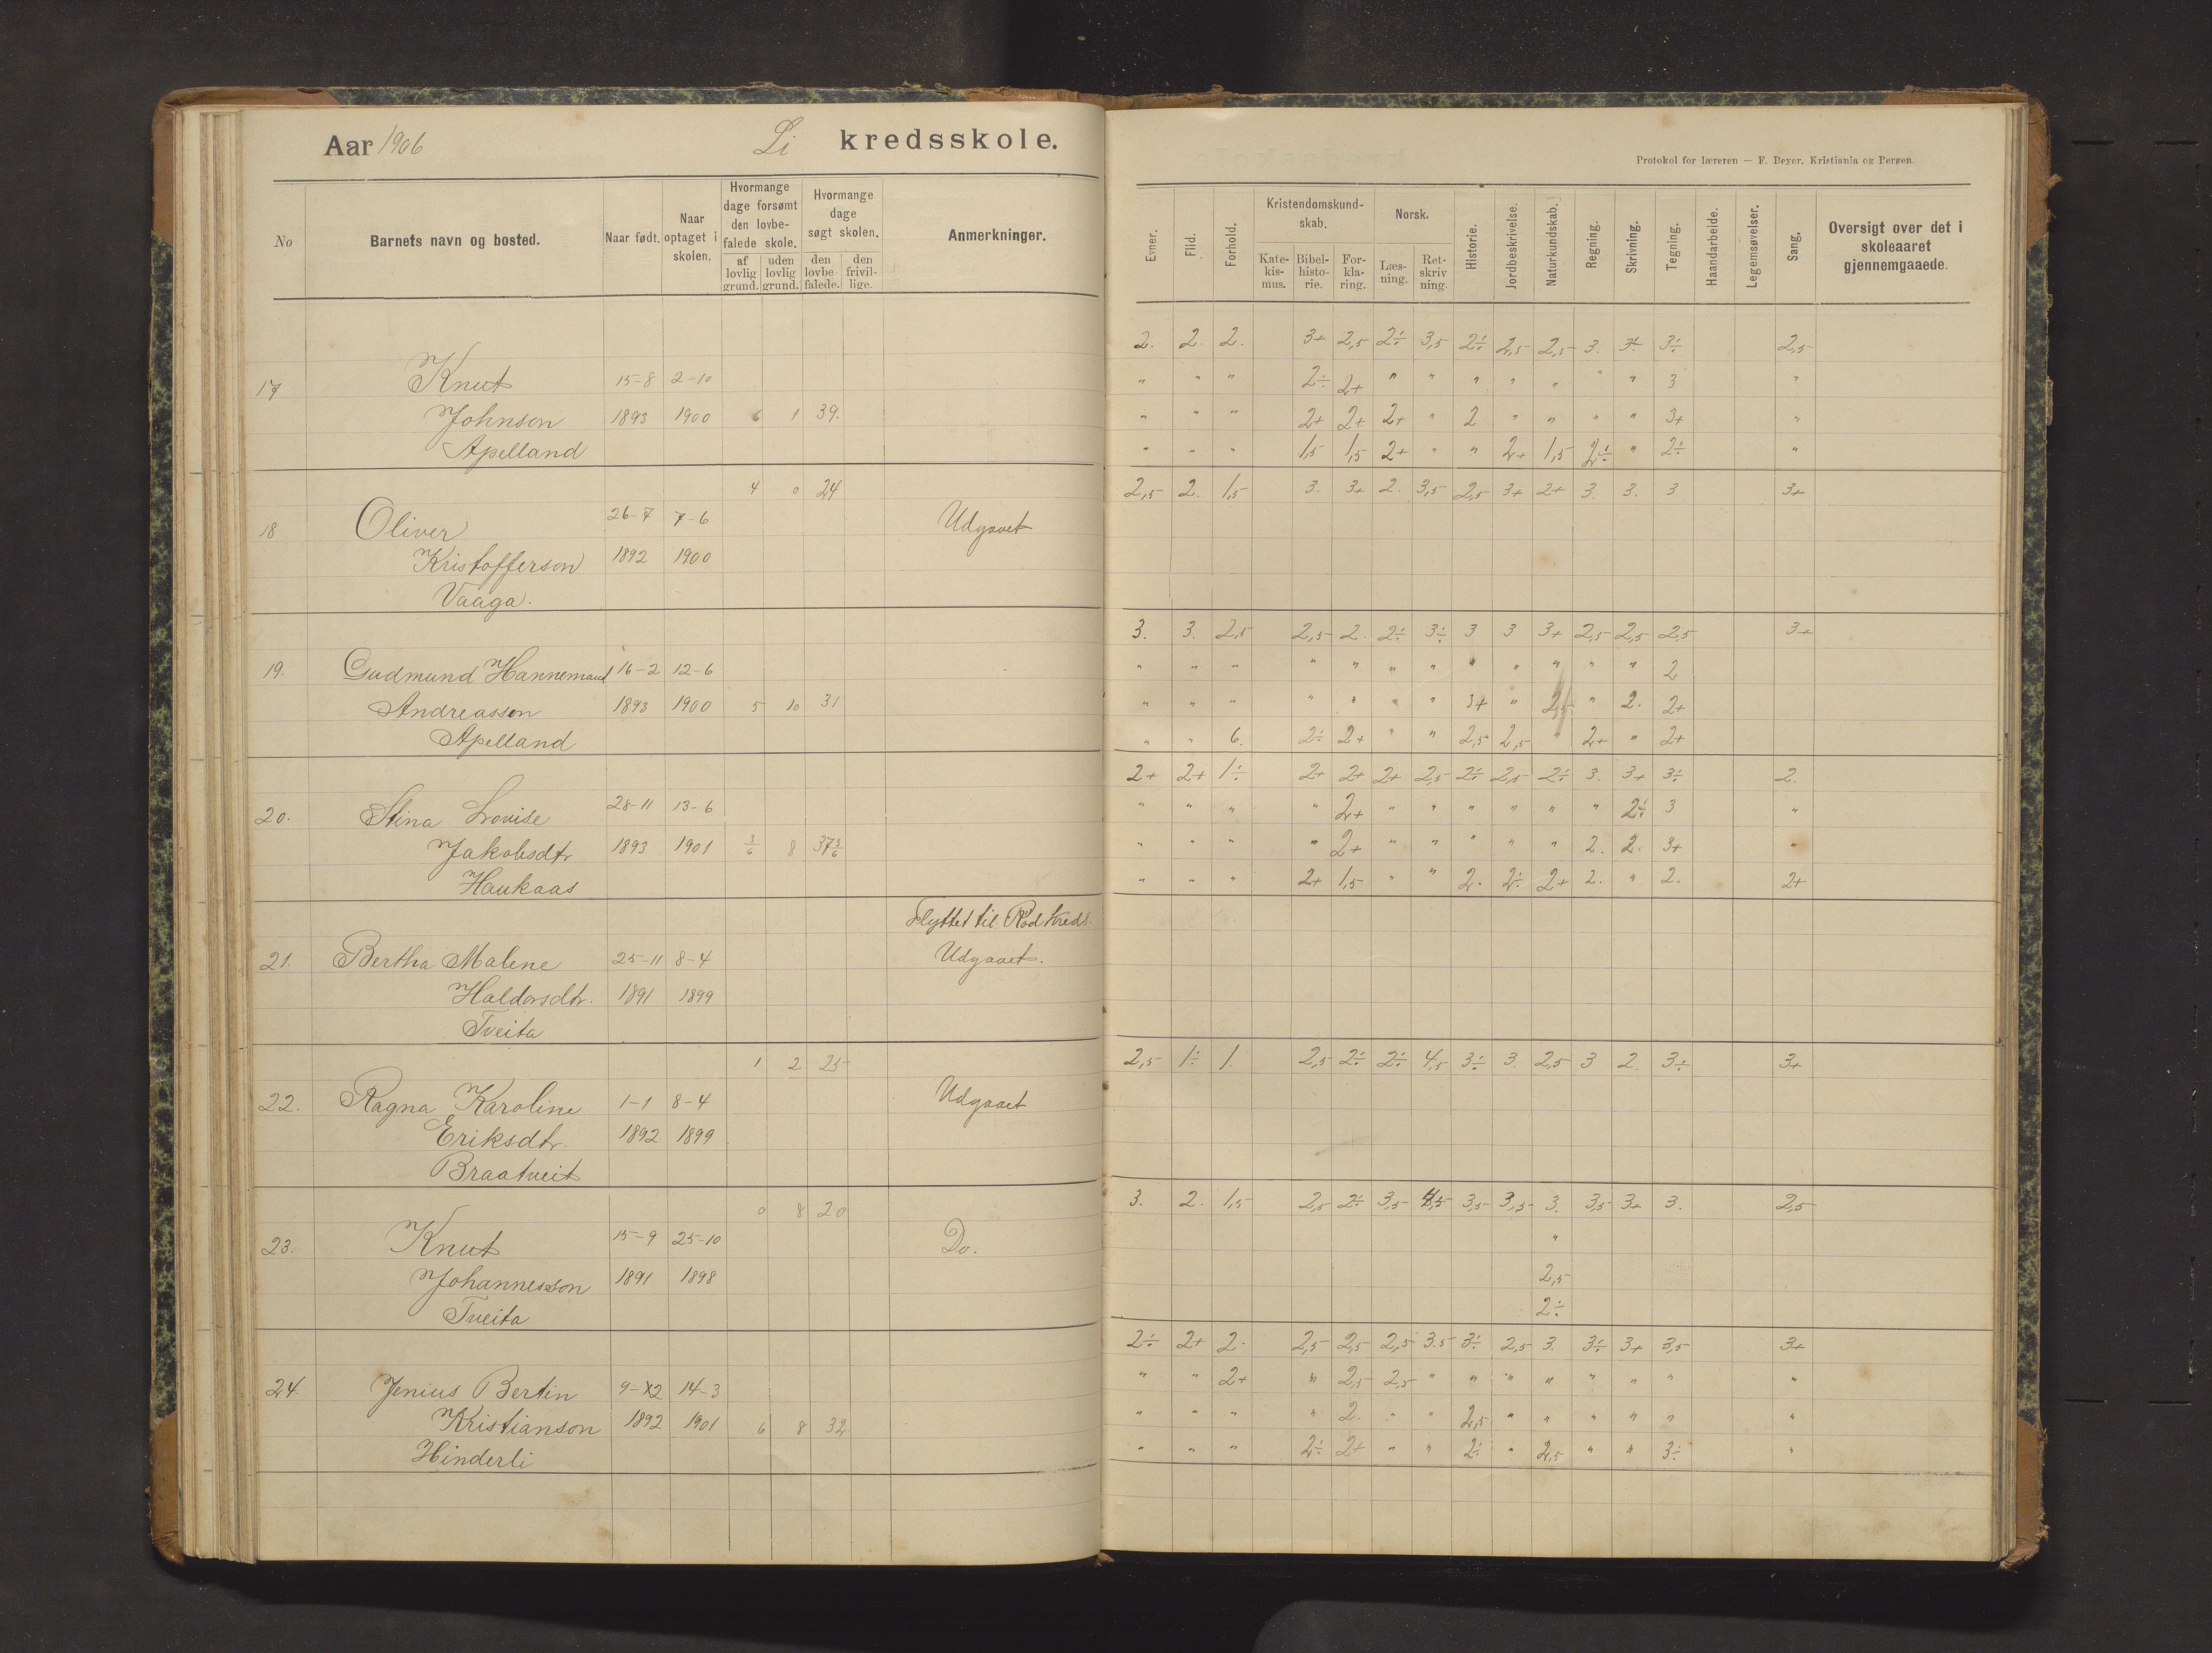 Aar 1906 Li kredsskole.
No
Barnets navn og bosted.
Naar født.
Naar optaget i skolen.
Hvormange dage forsømt den lovbefalede skole.
af lovlig grund.
uden lovlig grund.
Hvormange dage søgt skolen.
den lovbefalede.
den frivillige.
Anmerkninger.
17 Knut 15-8 2-10
Johnson 1893 1900 6 1 39.
Apelland
4 0 24
18 Oliver 26-7 7-6 Udgaaet
Kristofferson 1892 1900
Vaaga.
19. Gudmund Hannemand 16-2 12-6
Andreasson 1893 1900 5 10 31
Apelland
20. Stina Lovise 28-11 13-6
Jakobsdtr 1893 1901 3/6 8 37 3/6
Haukaas
Flyttet til Rød Kreds.
21. Bertha Malene 25-11 8-4 Udgaaet.
Haldorsdtr. 1891 1899
Tveita
1 2 25
22. Ragna Karoline 1-1 8-4 Udgaaet
Eriksdtr. 1892 1899
Braatveit
0 8 20
23. Knut 15-9 25-10 Do.
Johannesson 1891 1898
Tveita
24. Jenius Bertin 9-12 14-3
Kristianson 1892 1901 6 8 32
Hinderli
Protokol for læreren — F. Beyer, Kristiania og Bergen.
Evner.
Flid.
Forhold.
Kristendomskundskab.
Katekismus.
Bibelhistorie.
Forklaring.
Norsk.
Læsning.
Retskrivning.
Historie.
Jordbeskrivelse.
Naturkundskab.
Regning.
Skrivning.
Tegning.
Haandarbeide.
Legemsøvelser.
Sang.
Oversigt over det i skoleaaret gjennemgaaede.
2. 2. 2. 3+ 2,5 2÷ 3,5 2÷ 2,5 2,5 3. 3+ 3÷ 2,5
" " " 2÷ 2+ " " " " " " " 3 "
" " " 2+ 2+ 2+ " 2 " " " " 3+ "
" " " 1,5 1,5 2+ " " 2+ 1,5 2÷ " 2÷ "
2,5 2. 1,5 3. 3+ 2. 3,5 2,5 3+ 2+ 3. 3. 3 3+
3. 3. 2,5 2,5 2. 2÷ 3÷ 3 3 3+ 2,5 2,5 2,5 3+
" " " " " " " " " " " " 2
" " " " " " " 3+ " 2,5 " 2. 2+
" " 6. 2÷ 2+ " " 2,5 2,5 " 2+ " 2+
2+ 2+ 1÷ 2+ 2+ 2+ 2,5 2÷ 2,5 2÷ 3. 3+ 3÷ 2.
" " " " 2+ " " " " " " 2÷ 3 "
" " " " 2+ " " " " " 2. 2. 3+ "
" " " 2+ 1,5 " " 2. 2÷ 2+ 2. " 2. 2+
2,5 1÷ 1. 2,5 2÷ 2÷ 4,5 3÷ 3. 2,5 3 2. 3÷ 3+
3. 2. 1,5 2,5 2÷ 3,5 4,5 3,5 3,5 3. 3,5 3+ 3. 2,5
"
2,5
2÷
2÷ 2+ 2. 2,5 2,5 2,5 3.5 3÷ 2,5 3. 3÷ 3+ 3,5 3+
" " 2+ " 2,5 2,5 " " " " " " " "
" " " " 2. " " 2,5 " " " " " "
" " " 2÷ 2+ " " 2÷ " 2,5 " " 3÷ "